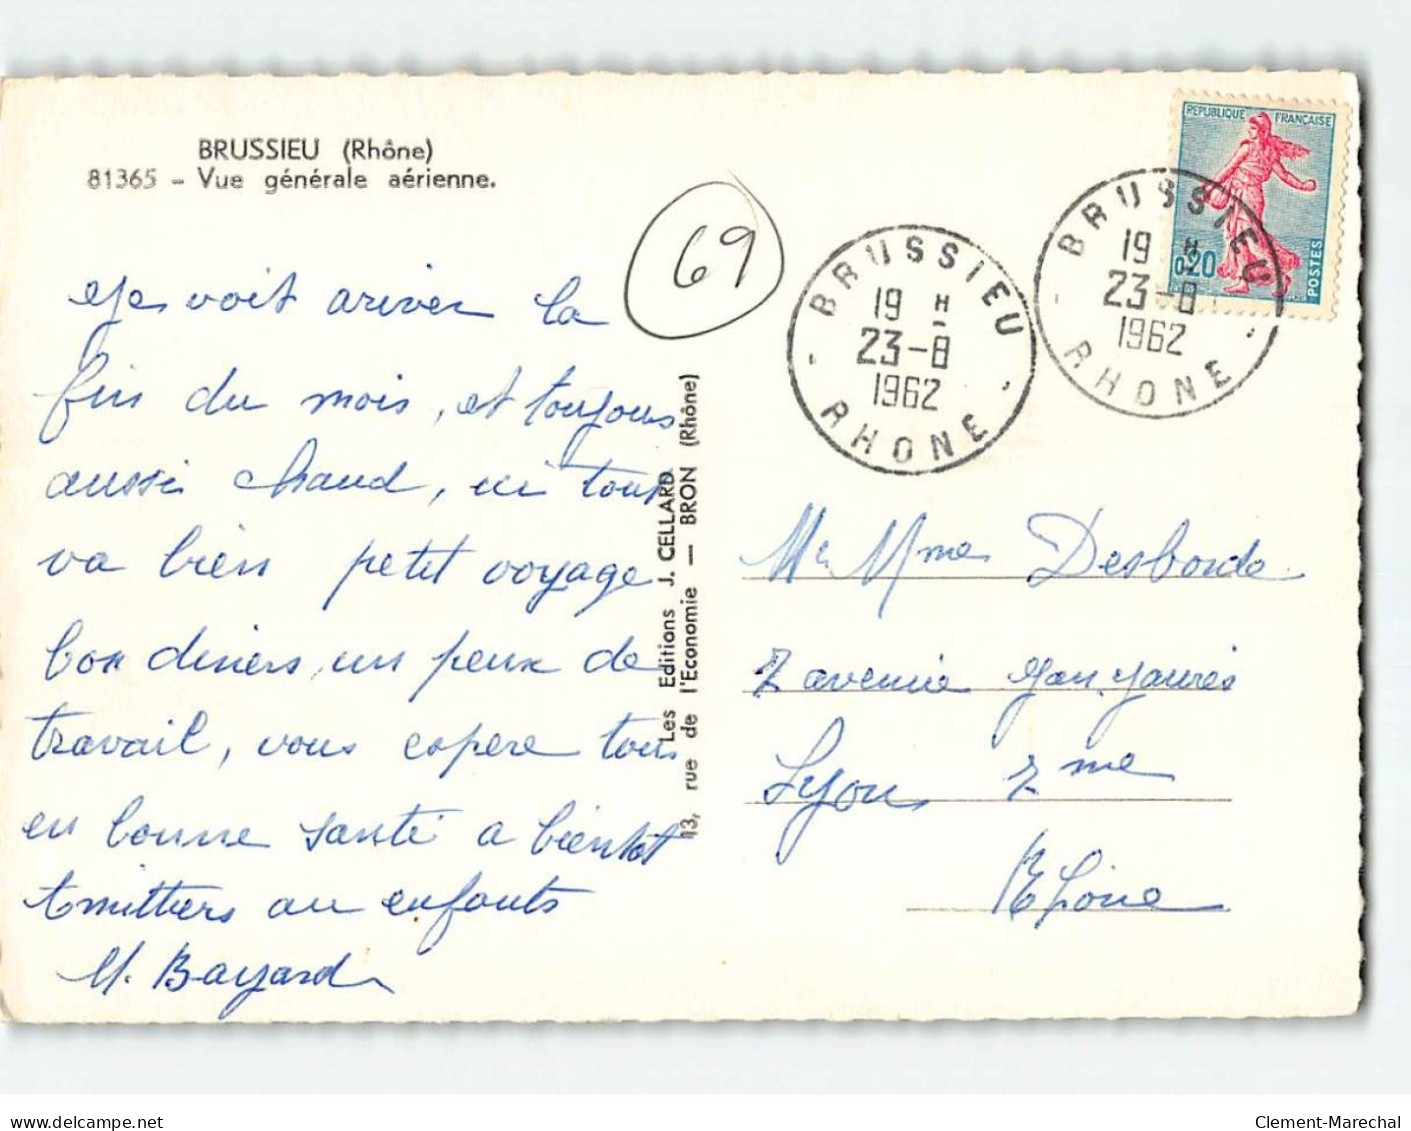 BRUSSIEU (Rhône)
81365 - Vue générale aérienne.
69
Je voit ariver la
fin du mois, et toujours
aussi chaud, ici tout
va bien petit voyage
bon diners, un peux de
travail, vous espere tous
en bonne santé a bientot
amitiers au enfants
M. Bayard
Les Editions J. CELLARD
13, rue de l'Economie — BRON (Rhône)
BRUSSIEU
19 H
23-8
1962
RHONE
BRUSSIEU
19 H
23-8
1962
RHONE
REPUBLIQUE FRANÇAISE
0,20
POSTES
Mr Mme Desborde
7 avenue Jean Jaurès
Lyon 7me
Rhône
delcampe.net
Clement-Marechal